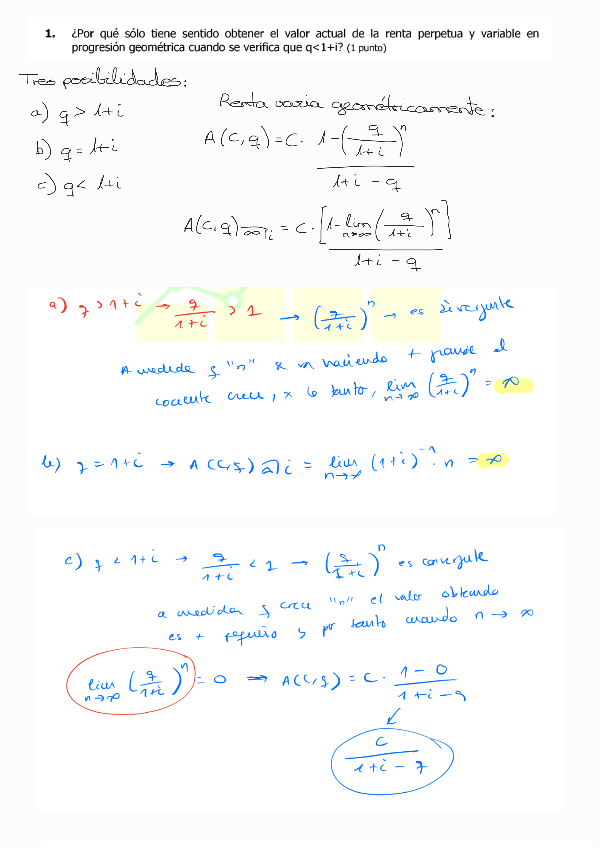 1. ¿Por qué sólo tiene sentido obtener el valor actual de la renta perpetua y variable en
progresión geométrica cuando se verifica que q<1+i? (1 punto)
Tres posibilidades:
a) q > 1+i
b) q = 1+i
c) q < 1+i
Renta varia geométricamente:
A(C,q) = C · 1-(q/1+i)^n / 1+i - q
A(C,q)∞⌉i = C · [1-lim n→∞ (q/1+i)^n] / 1+i - q
a) q > 1+i → q/1+i > 1 → (q/1+i)^n → es divergente
A medida q "n" se va haciendo + grande el
cociente crece, x lo tanto, lim n→∞ (q/1+i)^n = ∞
b) q = 1+i → A(C,q)∞⌉i = lim n→∞ (1+i)^-1 · n = ∞
c) q < 1+i → q/1+i < 1 → (q/1+i)^n es convergente
a medida q crece "n" el valor obtenido
es + pequeño y por tanto cuando n → ∞
lim n→∞ (q/1+i)^n = 0 ⇒ A(C,q) = C · 1-0 / 1+i-q
C / 1+i - q